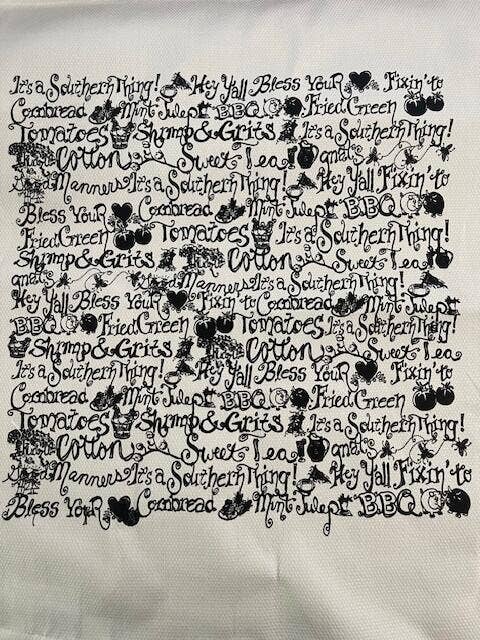 It's a Southern Thing! Hey Y'all Bless YouR Fixin' to
Cornbread Mint Julept BBQ Fried Green
Tomatoes Shrimp & Grits It's a Southern Thing!
Cotton Sweet Tea and
Good Manners It's a Southern Thing! Hey Y'all Fixin' to
Bless YouR Cornbread Mint Julept BBQ
Fried Green Tomatoes It's a Southern Thing!
Shrimp & Grits Cotton Sweet Tea
Good Manners It's a Southern Thing!
Hey Y'all Bless YouR Fixin' to Cornbread Mint Julept
BBQ Fried Green Tomatoes It's a Southern Thing!
Shrimp & Grits Cotton Sweet Tea
It's a Southern Thing! Hey Y'all Bless YouR Fixin' to
Cornbread Mint Julept BBQ Fried Green
Tomatoes Shrimp & Grits It's a Southern Thing!
Cotton Sweet Tea
Good Manners It's a Southern Thing! Hey Y'all Fixin' to
Bless YouR Cornbread Mint Julept BBQ